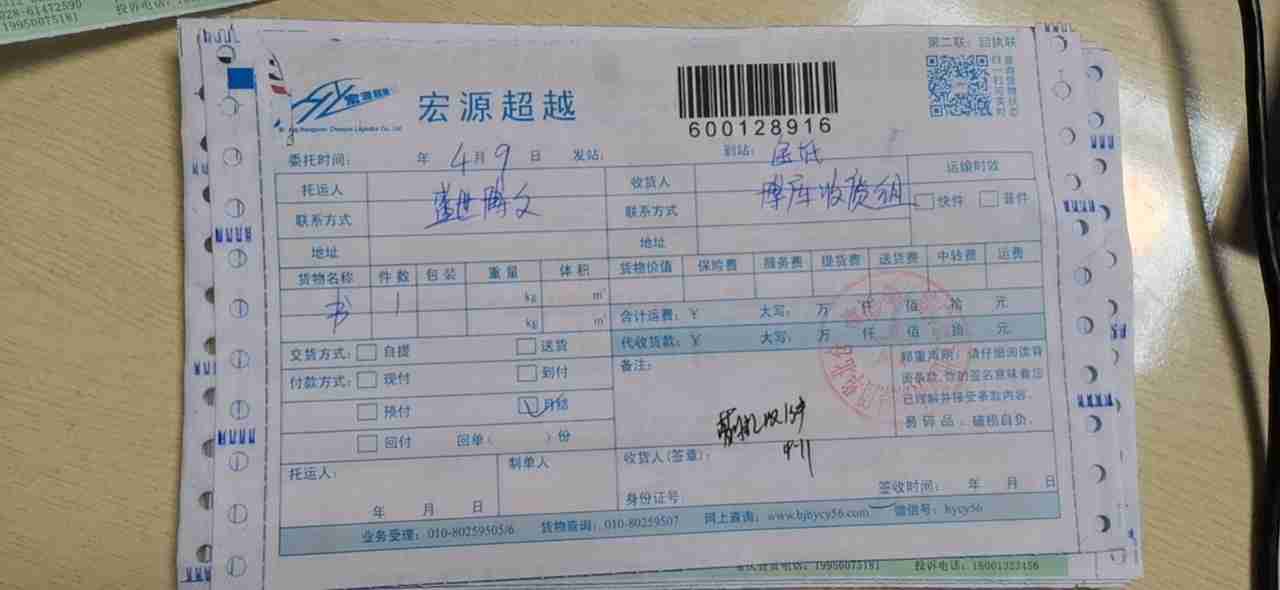 028-61472590
19950075181
投诉电话:
第二联:回执联
宏源超越
600128916
委托时间: 年 4月9日 发站: 到站:
托运人 收货人 运输时效
联系方式 盛世博文 联系方式 博库收货组 快件 普件
地址 地址
货物名称 件数 包装 重量 体积 货物价值 保险费 服务费 提货费 送货费 中转费 运费
书 1 kg m³
kg m³
合计运费:¥ 大写: 万 仟 佰 拾 元
代收货款:¥ 大写: 万 仟 佰 拾 元
交货方式: 自提 送货
付款方式: 现付 到付
预付 月结
回付 回单( )份
备注:
郑重声明:请仔细阅读背
面条款,你的签名意味着您
已理解并接受条款内容。
易碎品、破损自负。
收1件
4-11
托运人: 制单人 收货人(签章):
年 月 日 身份证号 签收时间: 年 月 日
业务受理:010-80259505/6 货物查询:010-80259507 网上查询:www.bjhycy56.com 微信号:hycy56
19950075181 投诉电话:18001323456